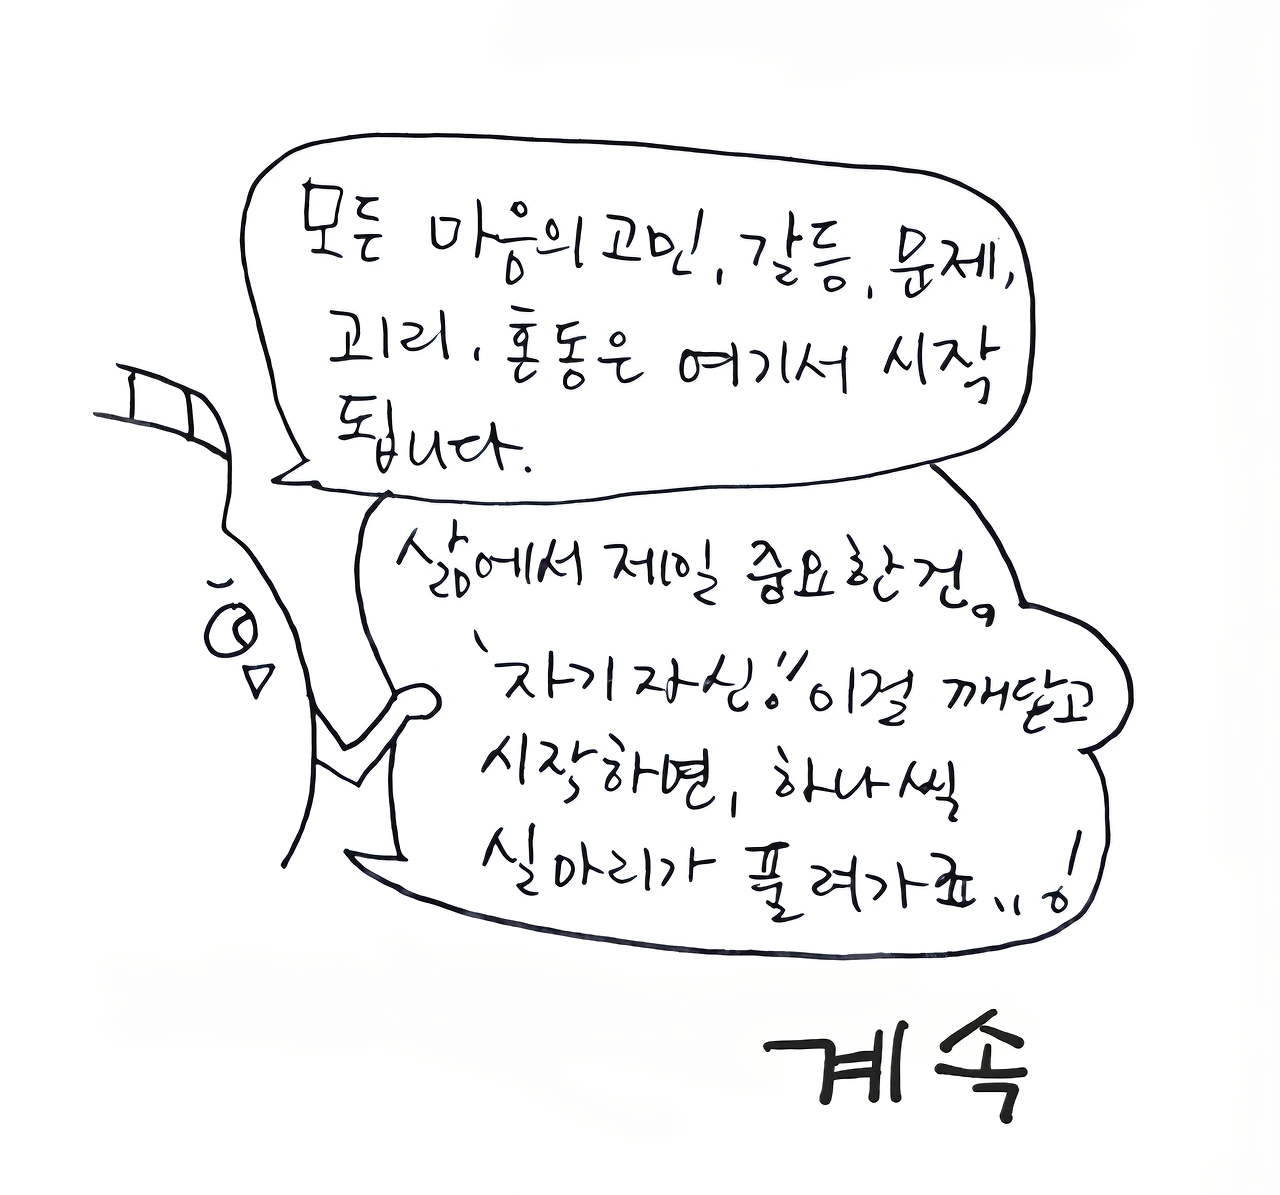 모든 마음의 고민, 갈등, 문제,
괴리, 혼동은 여기서 시작
됩니다.
삶에서 제일 중요한건。
‵자기자신!" 이걸 깨닫고
시작하면, 하나씩
실마리가 풀려가죠..!
계속